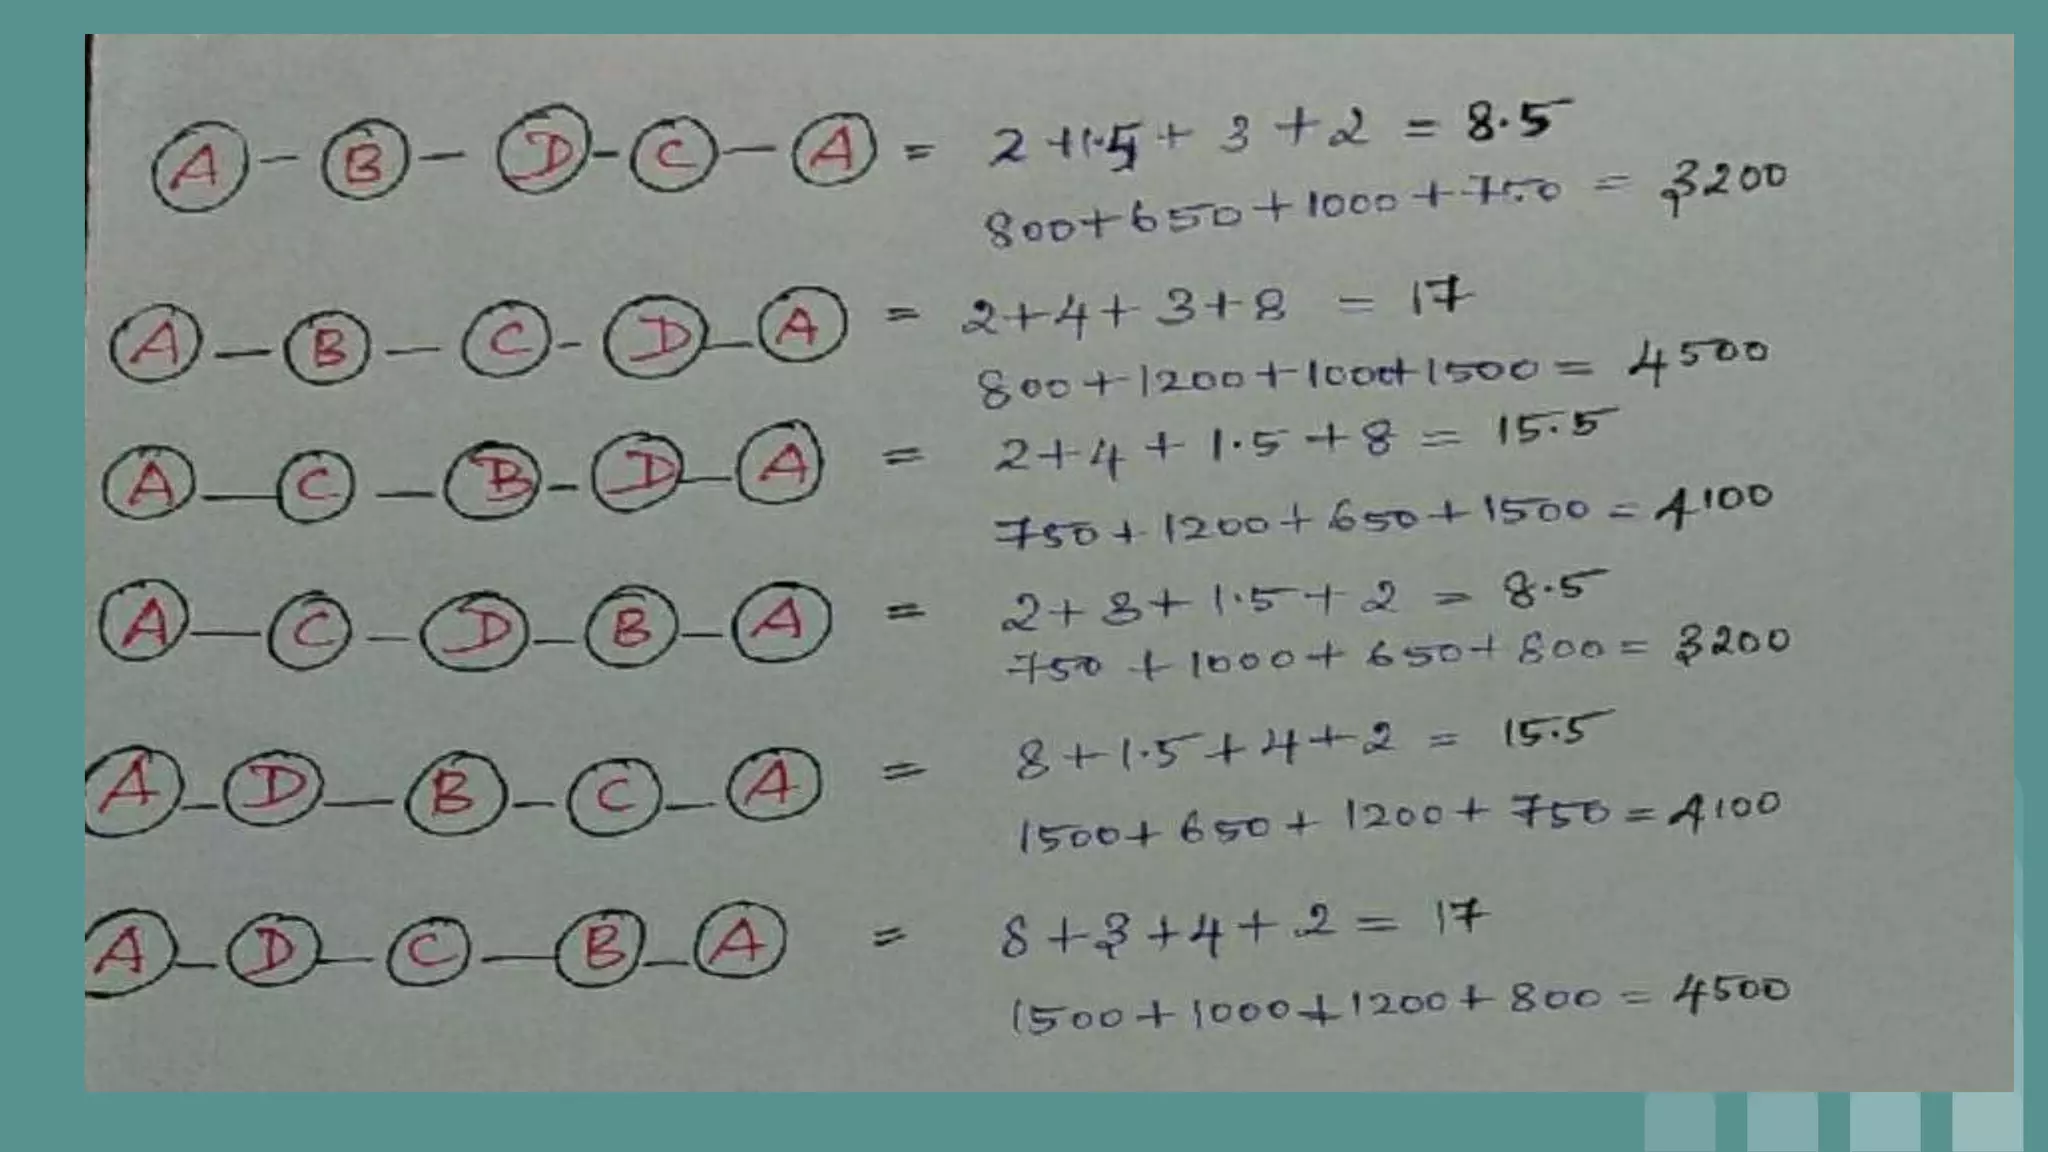 A - B - D - C - A = 2+1.5+ 3 +2 = 8.5
800+650+1000+750 = 3200
A - B - C - D - A = 2+4+ 3+8 = 17
800+1200+1000+1500 = 4500
A - C - B - D - A = 2+4+ 1.5 +8 = 15.5
750+1200+650+1500 = 4100
A - C - D - B - A = 2+3+ 1.5+2 = 8.5
750 +1000+ 650+800 = 3200
A - D - B - C - A = 8+1.5+4+2 = 15.5
1500+650+1200+750 = 4100
A - D - C - B - A = 8+3+4+2 = 17
1500+1000+1200+800 = 4500